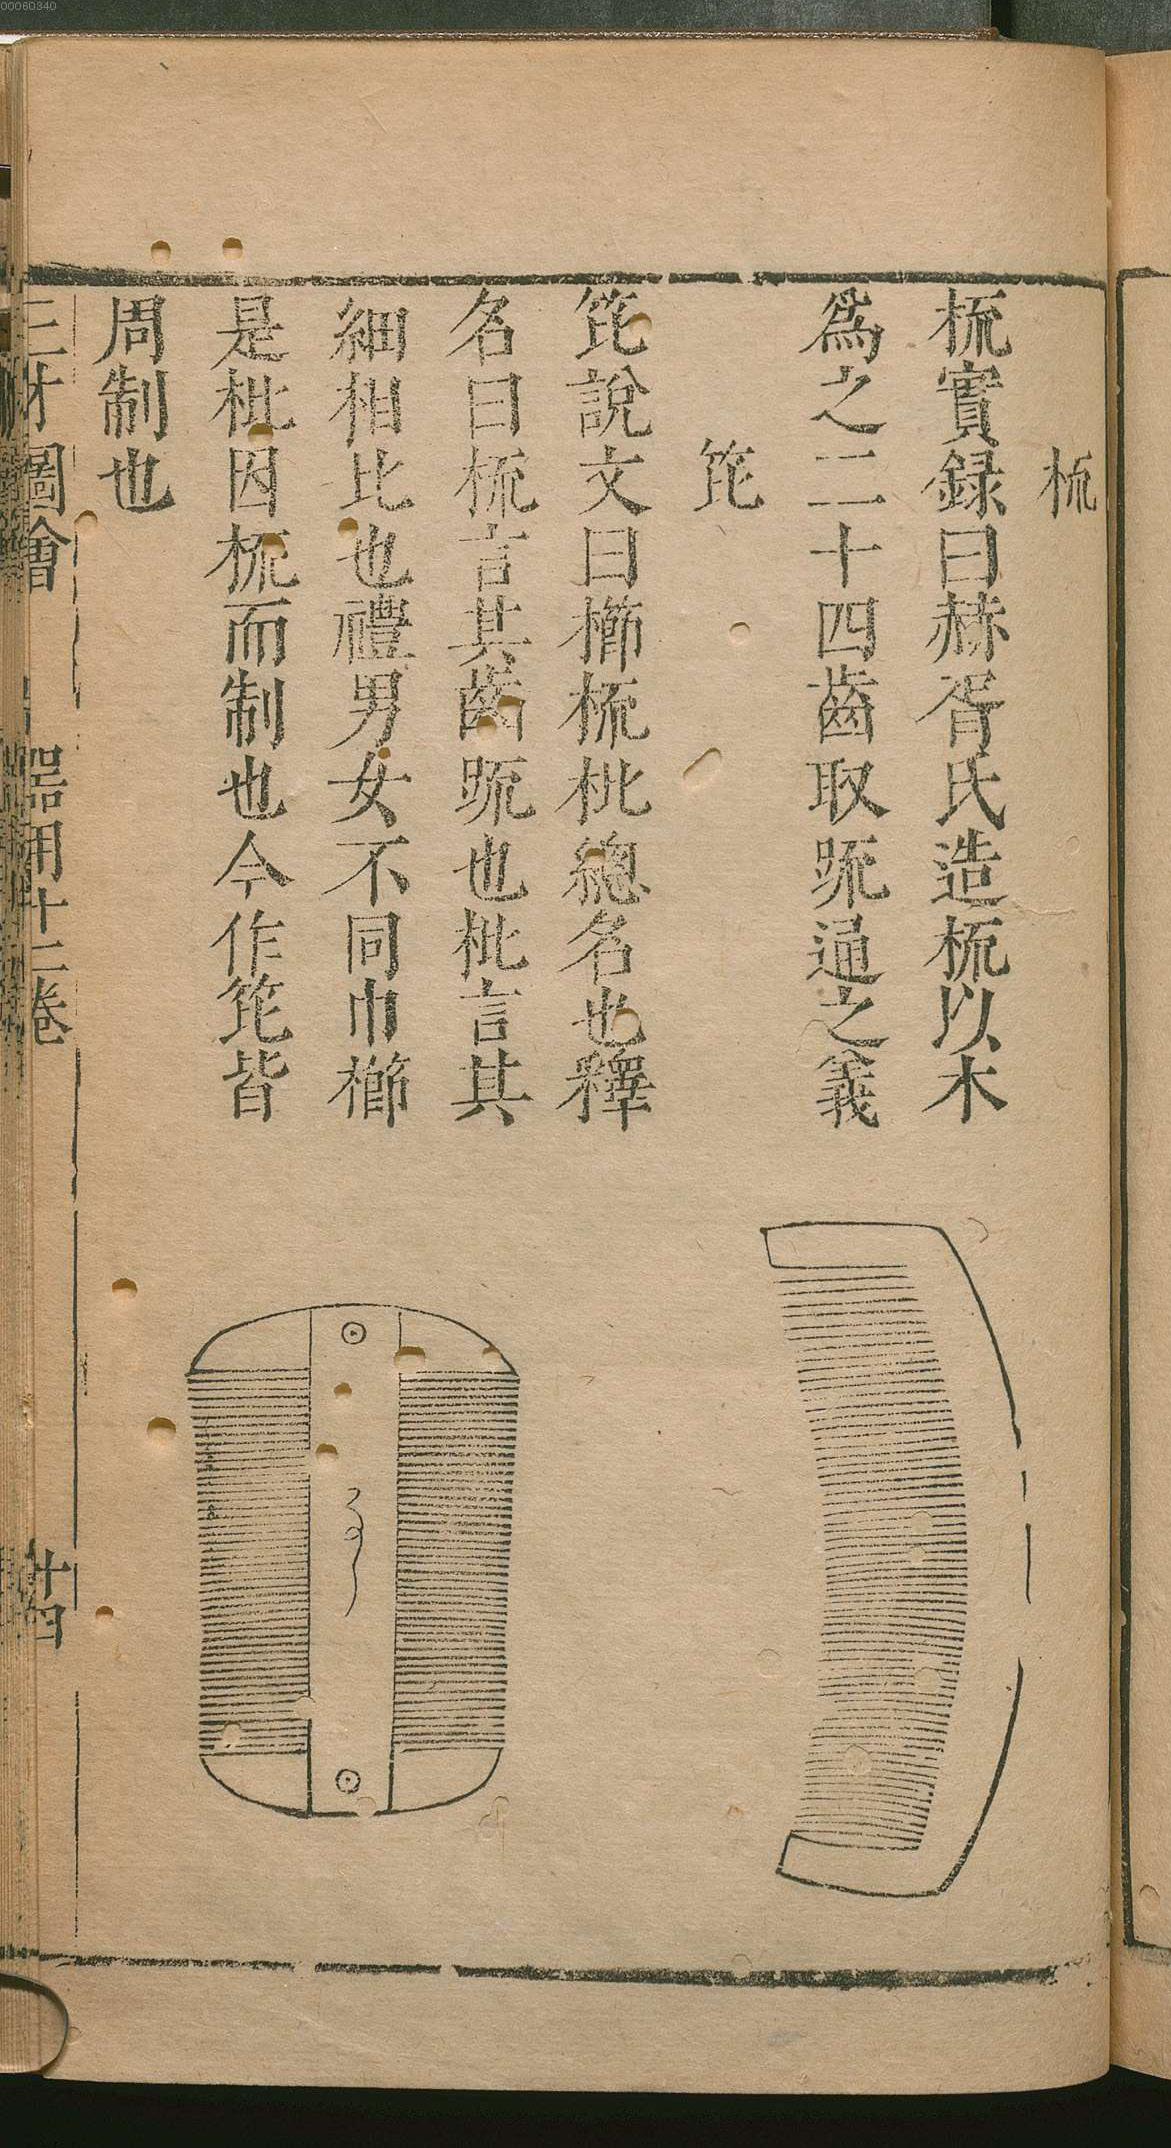 00060340
梳
梳實録曰赫胥氏造梳以木
爲之二十四齒取踈通之義
笓
笓說文曰櫛梳枇總名也釋
名曰梳言其齒踈也枇言其
細相比也禮男女不同巾櫛
是枇因梳而制也今作笓皆
周制也
三才圖會 器用十二卷 廿四